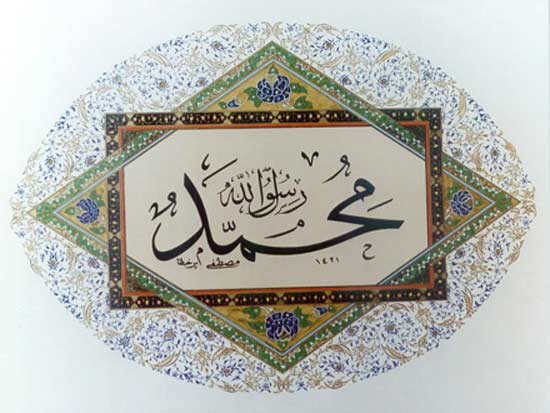 محمد رسول الله
١٤٢١
مصطفى